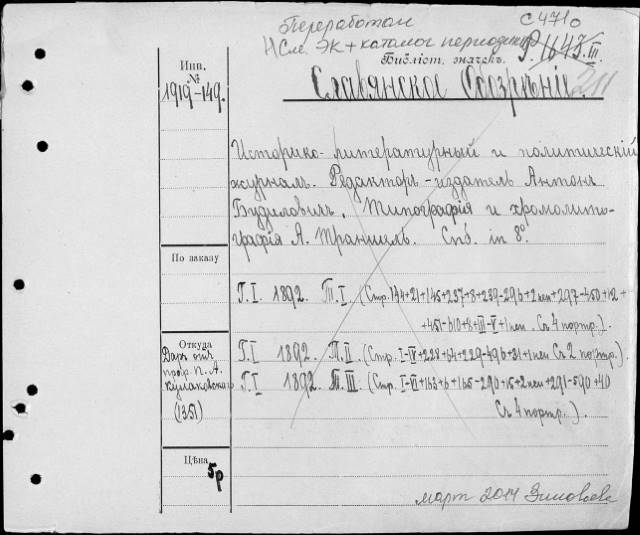 Переработан
С4710
НСм. ЭК + каталог периодики
Р. 1643 III.
211
Библіот. значекъ.
Инв.
№
1919-149.
Славянское Обозрѣніе.
Историко-литературный и политическій
журналъ. Редакторъ-издатель Антонъ
Будиловичъ. Типографія и хромолито-
графія А. Траншель. Спб. in 8°.
По заказу
Г. I. 1892. Т. I. (Стр. 144+21+145+237+8+239-296+2 нен+297-450+12+
+451-610+8+III-V+1 нен. Съ 4 портр.).
Откуда
Даръ отъ
проф. П. А.
Кулаковскаго
(1351)
Г. I 1892. Т. II. (Стр. I-IV+228+64+229-496+31+1 нен Съ 2 портр.).
Г. I 1892. Т. III. (Стр. I-VI+163+6+165-290+15+2 нен+291-590+40
Съ 4 портр.).
Цѣна
5р
март 2014 Зиновьева